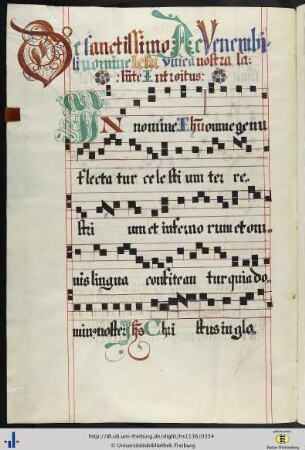 De sanctissimo Ac Venerabi
li nomine Iesu Unica nostra sa
lute Introitus:
IN nomine Ihu omne genu
flecta tur ce le sti um ter re
stri um et infernorum et om
nis lingua confitean tur quia do
minus noster Jhs Chri stus in glo
http://dl.ub.uni-freiburg.de/diglit/hs1136/0354
© Universitätsbibliothek Freiburg
Baden-Württemberg